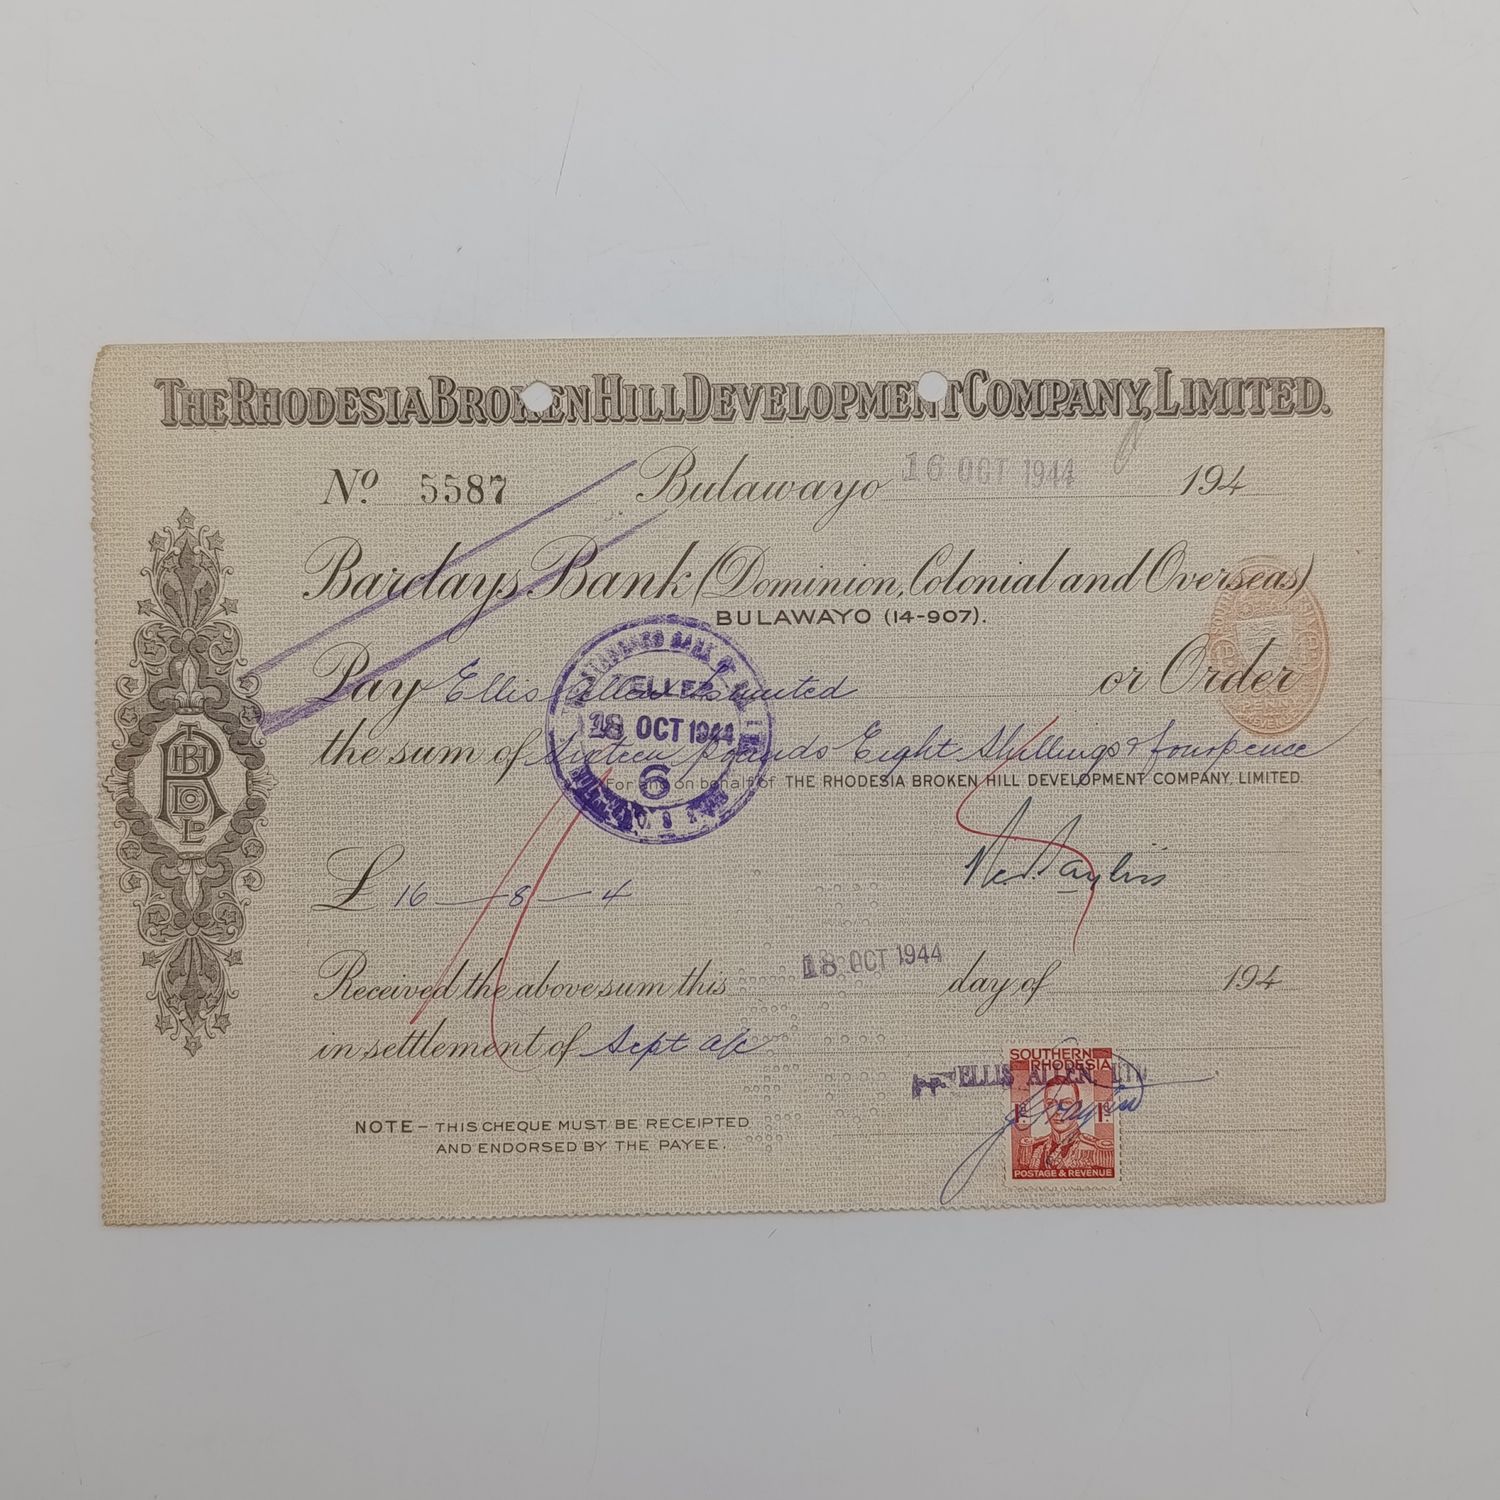 THE RHODESIA BROKEN HILL DEVELOPMENT COMPANY, LIMITED.
No. 5587 Bulawayo 16 OCT 1944 194
Barclays Bank (Dominion, Colonial and Overseas)
BULAWAYO (14-907).
Pay Ellis Allen Limited or Order
the sum of Sixteen pounds Eight Shillings & fourpence
For and on behalf of THE RHODESIA BROKEN HILL DEVELOPMENT COMPANY, LIMITED.
18 OCT 1944
6
£ 16 — 8 — 4
Received the above sum this 18 OCT 1944 day of 194
in settlement of Sept a/c
p.p. ELLIS ALLEN, LTD
SOUTHERN RHODESIA
1d 1d
POSTAGE & REVENUE
NOTE – THIS CHEQUE MUST BE RECEIPTED
AND ENDORSED BY THE PAYEE.